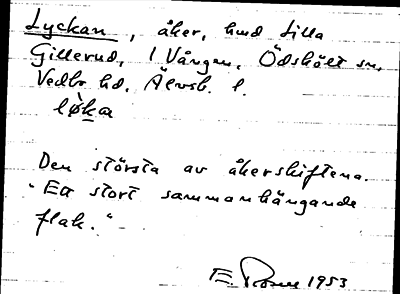 Lyckan, åker, hmd Lilla
Gillerud, 1 Vången, Ödskölt sn,
Vedbo hd, Älvsb. l.
løka
Den största av åkerskiftena.
"Ett stort sammanhängande
flak."
E. 1953